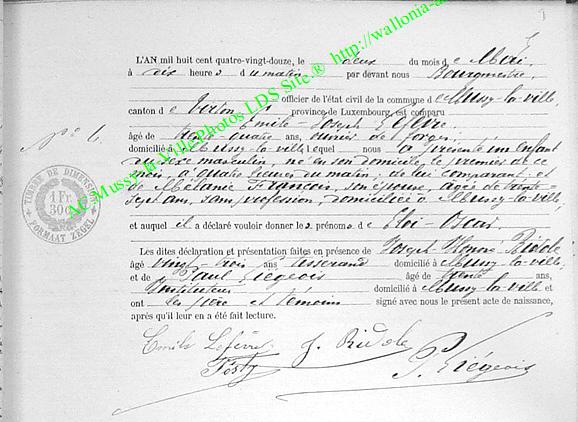 L'AN mil huit cent quatre-vingt-douze, le deux du mois de Mai
à dix heures du matin par devant nous Bourgmestre
officier de l'état civil de la commune de Mussy-la-ville,
canton de Virton province de Luxembourg, est comparu
Emile-Joseph Lefèvre
âgé de trente quatre ans, ouvrier de forges,
domicilié à Mussy-la-ville lequel nous a présenté un Enfant
du sexe masculin, né en son domicile, le premier de ce
mois, à quatre heures du matin, de lui comparant et
de Mélanie François, son épouse, agée de trente-
sept ans, sans profession, domiciliée à Mussy-la-ville
et auquel il a déclaré vouloir donner les prénoms de Eloi-Oscar
Les dites déclaration et présentation faites en présence de Joseph Ridole
âgé vingt-trois ans tisserand domicilié à Mussy-la-ville,
et de Paul Liégeois âgé de trente ans,
Instituteur domicilié à Mussy-la-ville et
ont les père et témoins signé avec nous le présent acte de naissance,
après qu'il leur en a été fait lecture.
Emile Lefèvre J. Ridole
P. Liégeois
N° 4.
TIMBRE DE DIMENSION
1 Fr.
30c
FORMAAT ZEGEL
AC Mussy-la-Ville Photos LDS Site.® http://wallonia-a